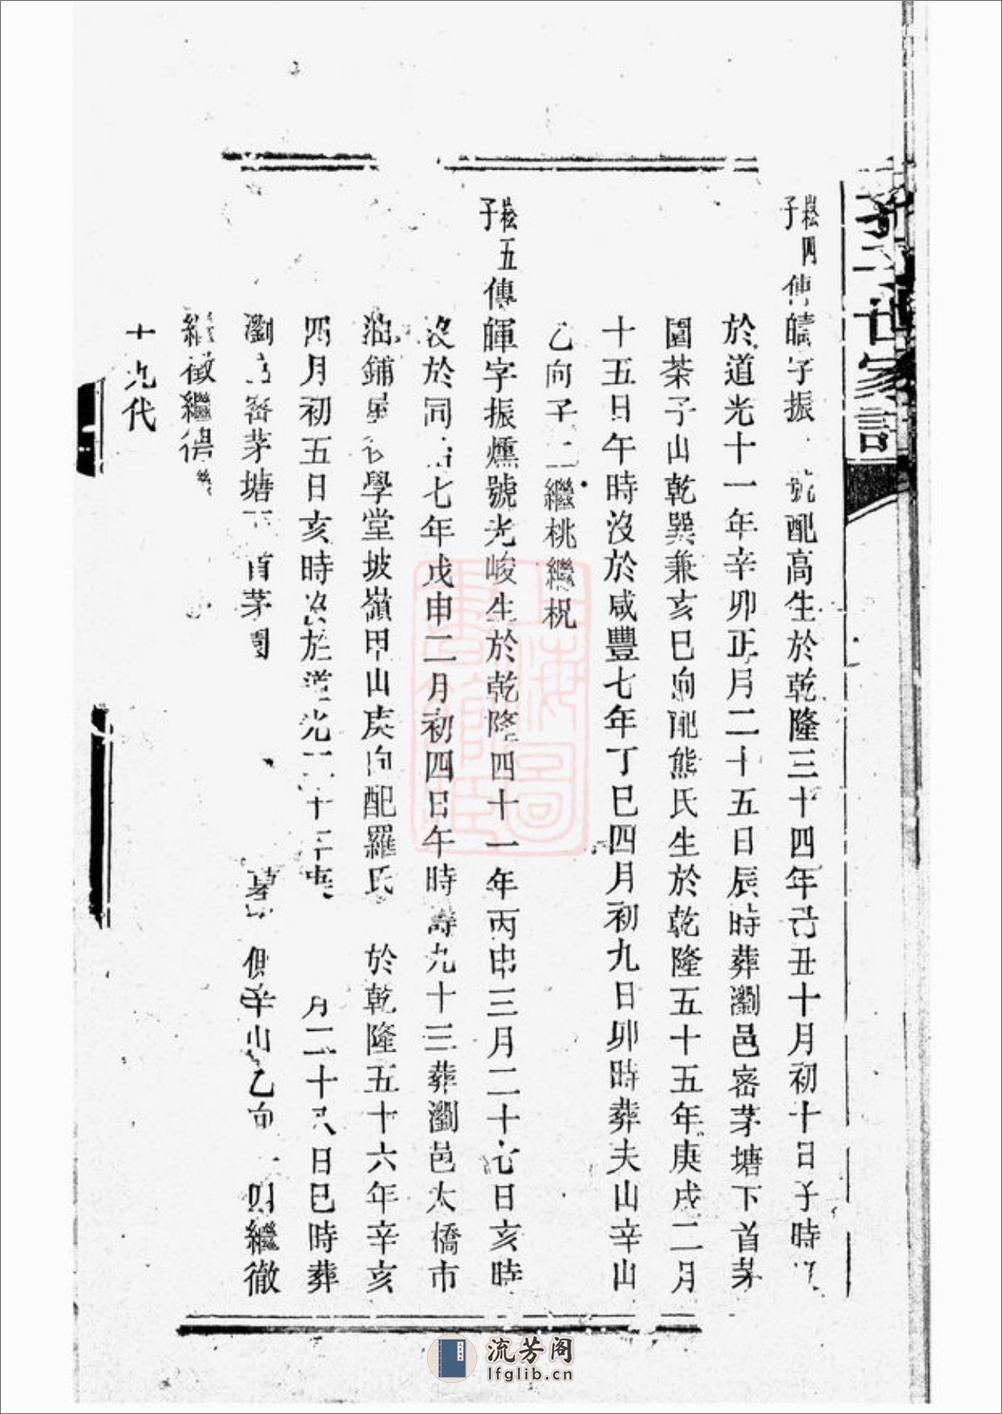 崧四子
傳 字振 配高生於乾隆三十四年己丑十月初十日子時
於道光十一年辛卯正月二十五日辰時葬瀏邑密茅塘下首茅
園茶子山乾巽兼亥巳向配熊氏生於乾隆五十五年庚戌二月
十五日午時沒於咸豐七年丁巳四月初九日卯時葬夫山辛山
乙向子二繼桃繼祝
崧五子
傳暉字振燻號光峻生於乾隆四十一年丙申三月二十七日亥時
沒於同治七年戊申二月初四日午時壽九十三葬瀏邑大橋市
油鋪屋後學堂坡嶺甲山庚向配羅氏 於乾隆五十六年辛亥
四月初五日亥時沒於道光 十 月二十八日巳時葬
瀏邑密茅塘下首茅園 辛山乙向 繼徹
繼徵繼得
十九代
世家譜
上海圖書館藏
流芳阁
lfglib.cn